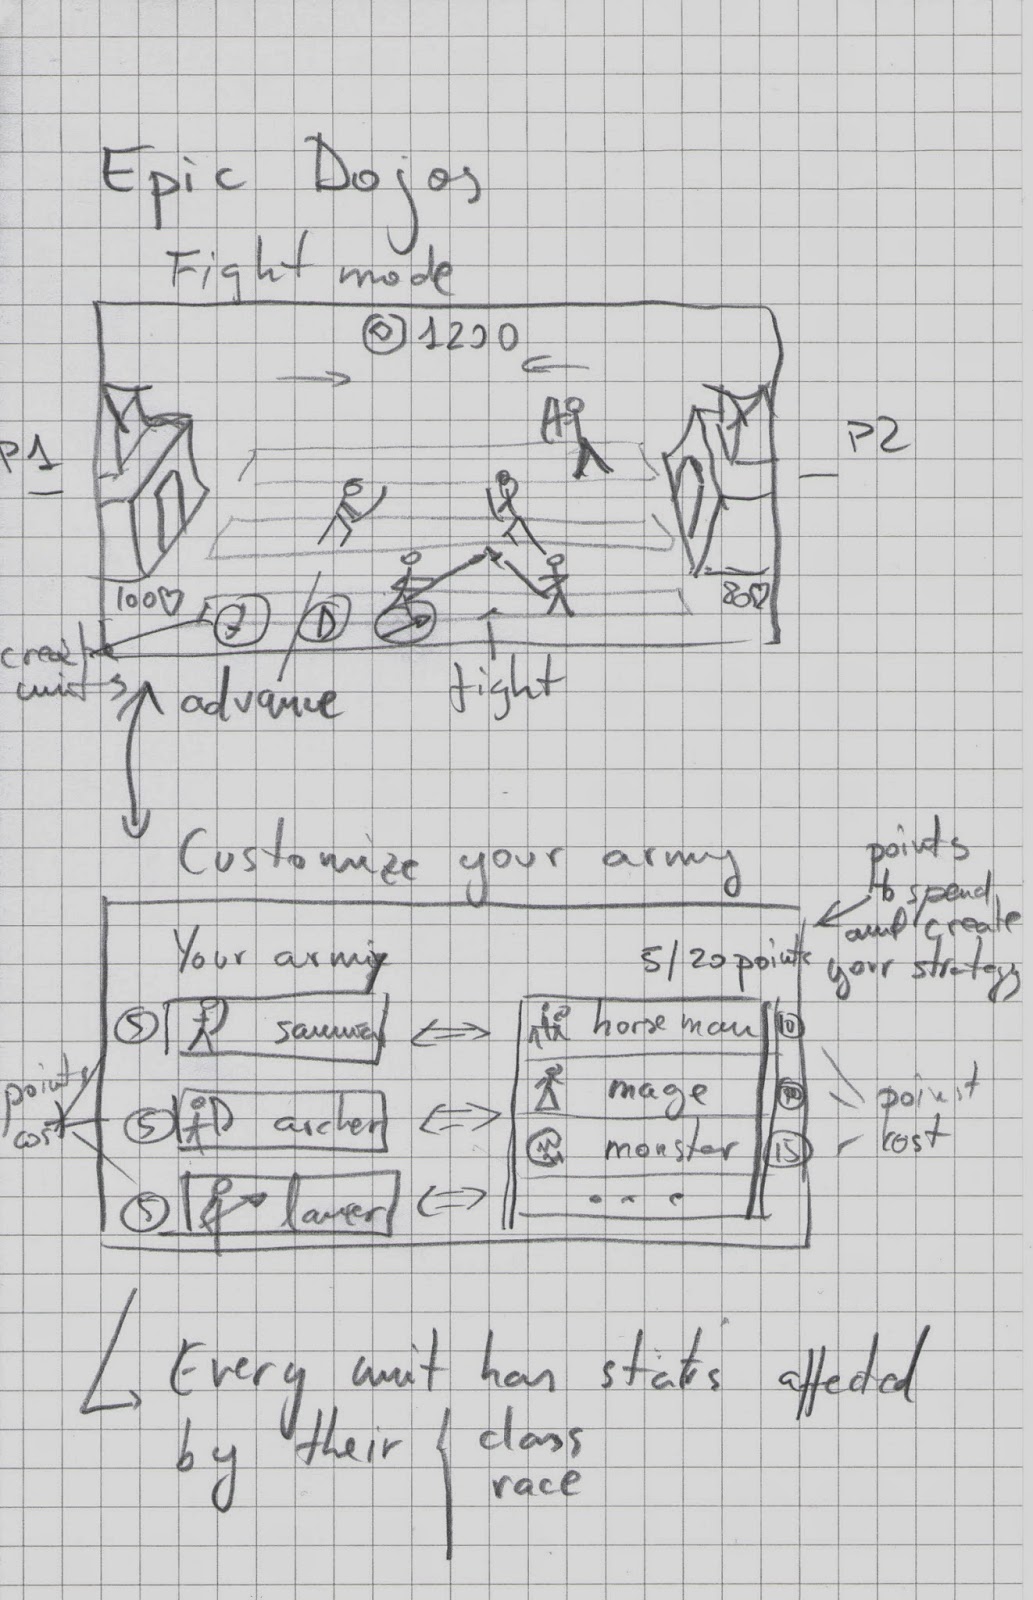 Epic Dojos
Fight mode
1200
P1
P2
100♡
80♡
D
create
units
advance
fight
Customize your army
points
to spend
and create
your strategy
Your army
5/20 points
5 samurai
horseman 10
5 archer
mage
5 lancer
monster 15
...
points
cost
point
cost
Every unit has stats affected
by their { class
race